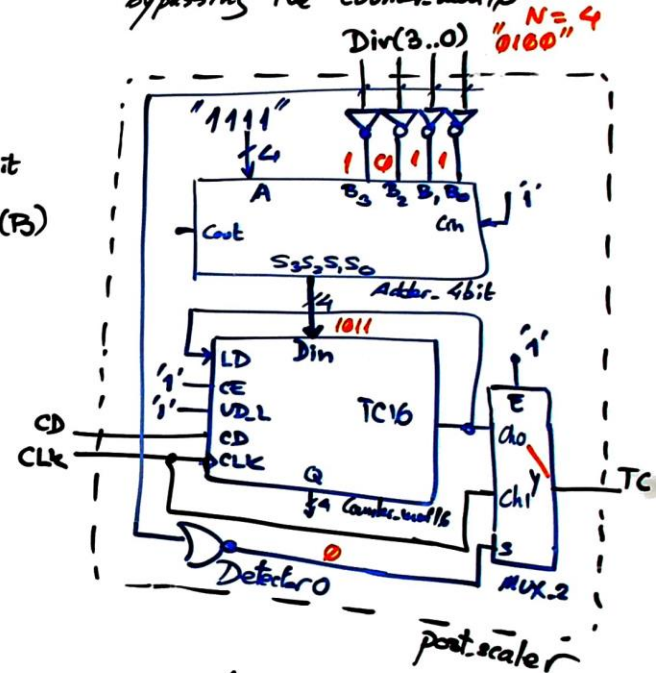 bypassing the counter_mod16
N = 4
Dir(3..0) "0100"
"1111"
4
1 0 1 1
it
(B)
A B3 B2 B1 B0
'1'
Cout Cin
S3 S2 S1 S0
Adder_4bit
4
1011
LD Din
'1' CE
'1' UD_L TC16
CD CD
CLK CLK
Q
4 Counter_mod16
'1'
E
Ch0
Y TC
Ch1
S
MUX_2
0
Detector0
post_scaler